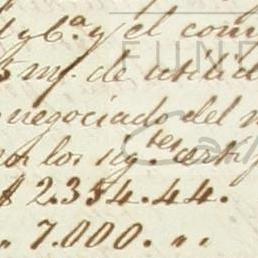 y 6ª y el com
5 m/. de utilid
negociado del n
por los sigtes. certif
$ 2.354.44.
„ 7.000. „ „
FUND